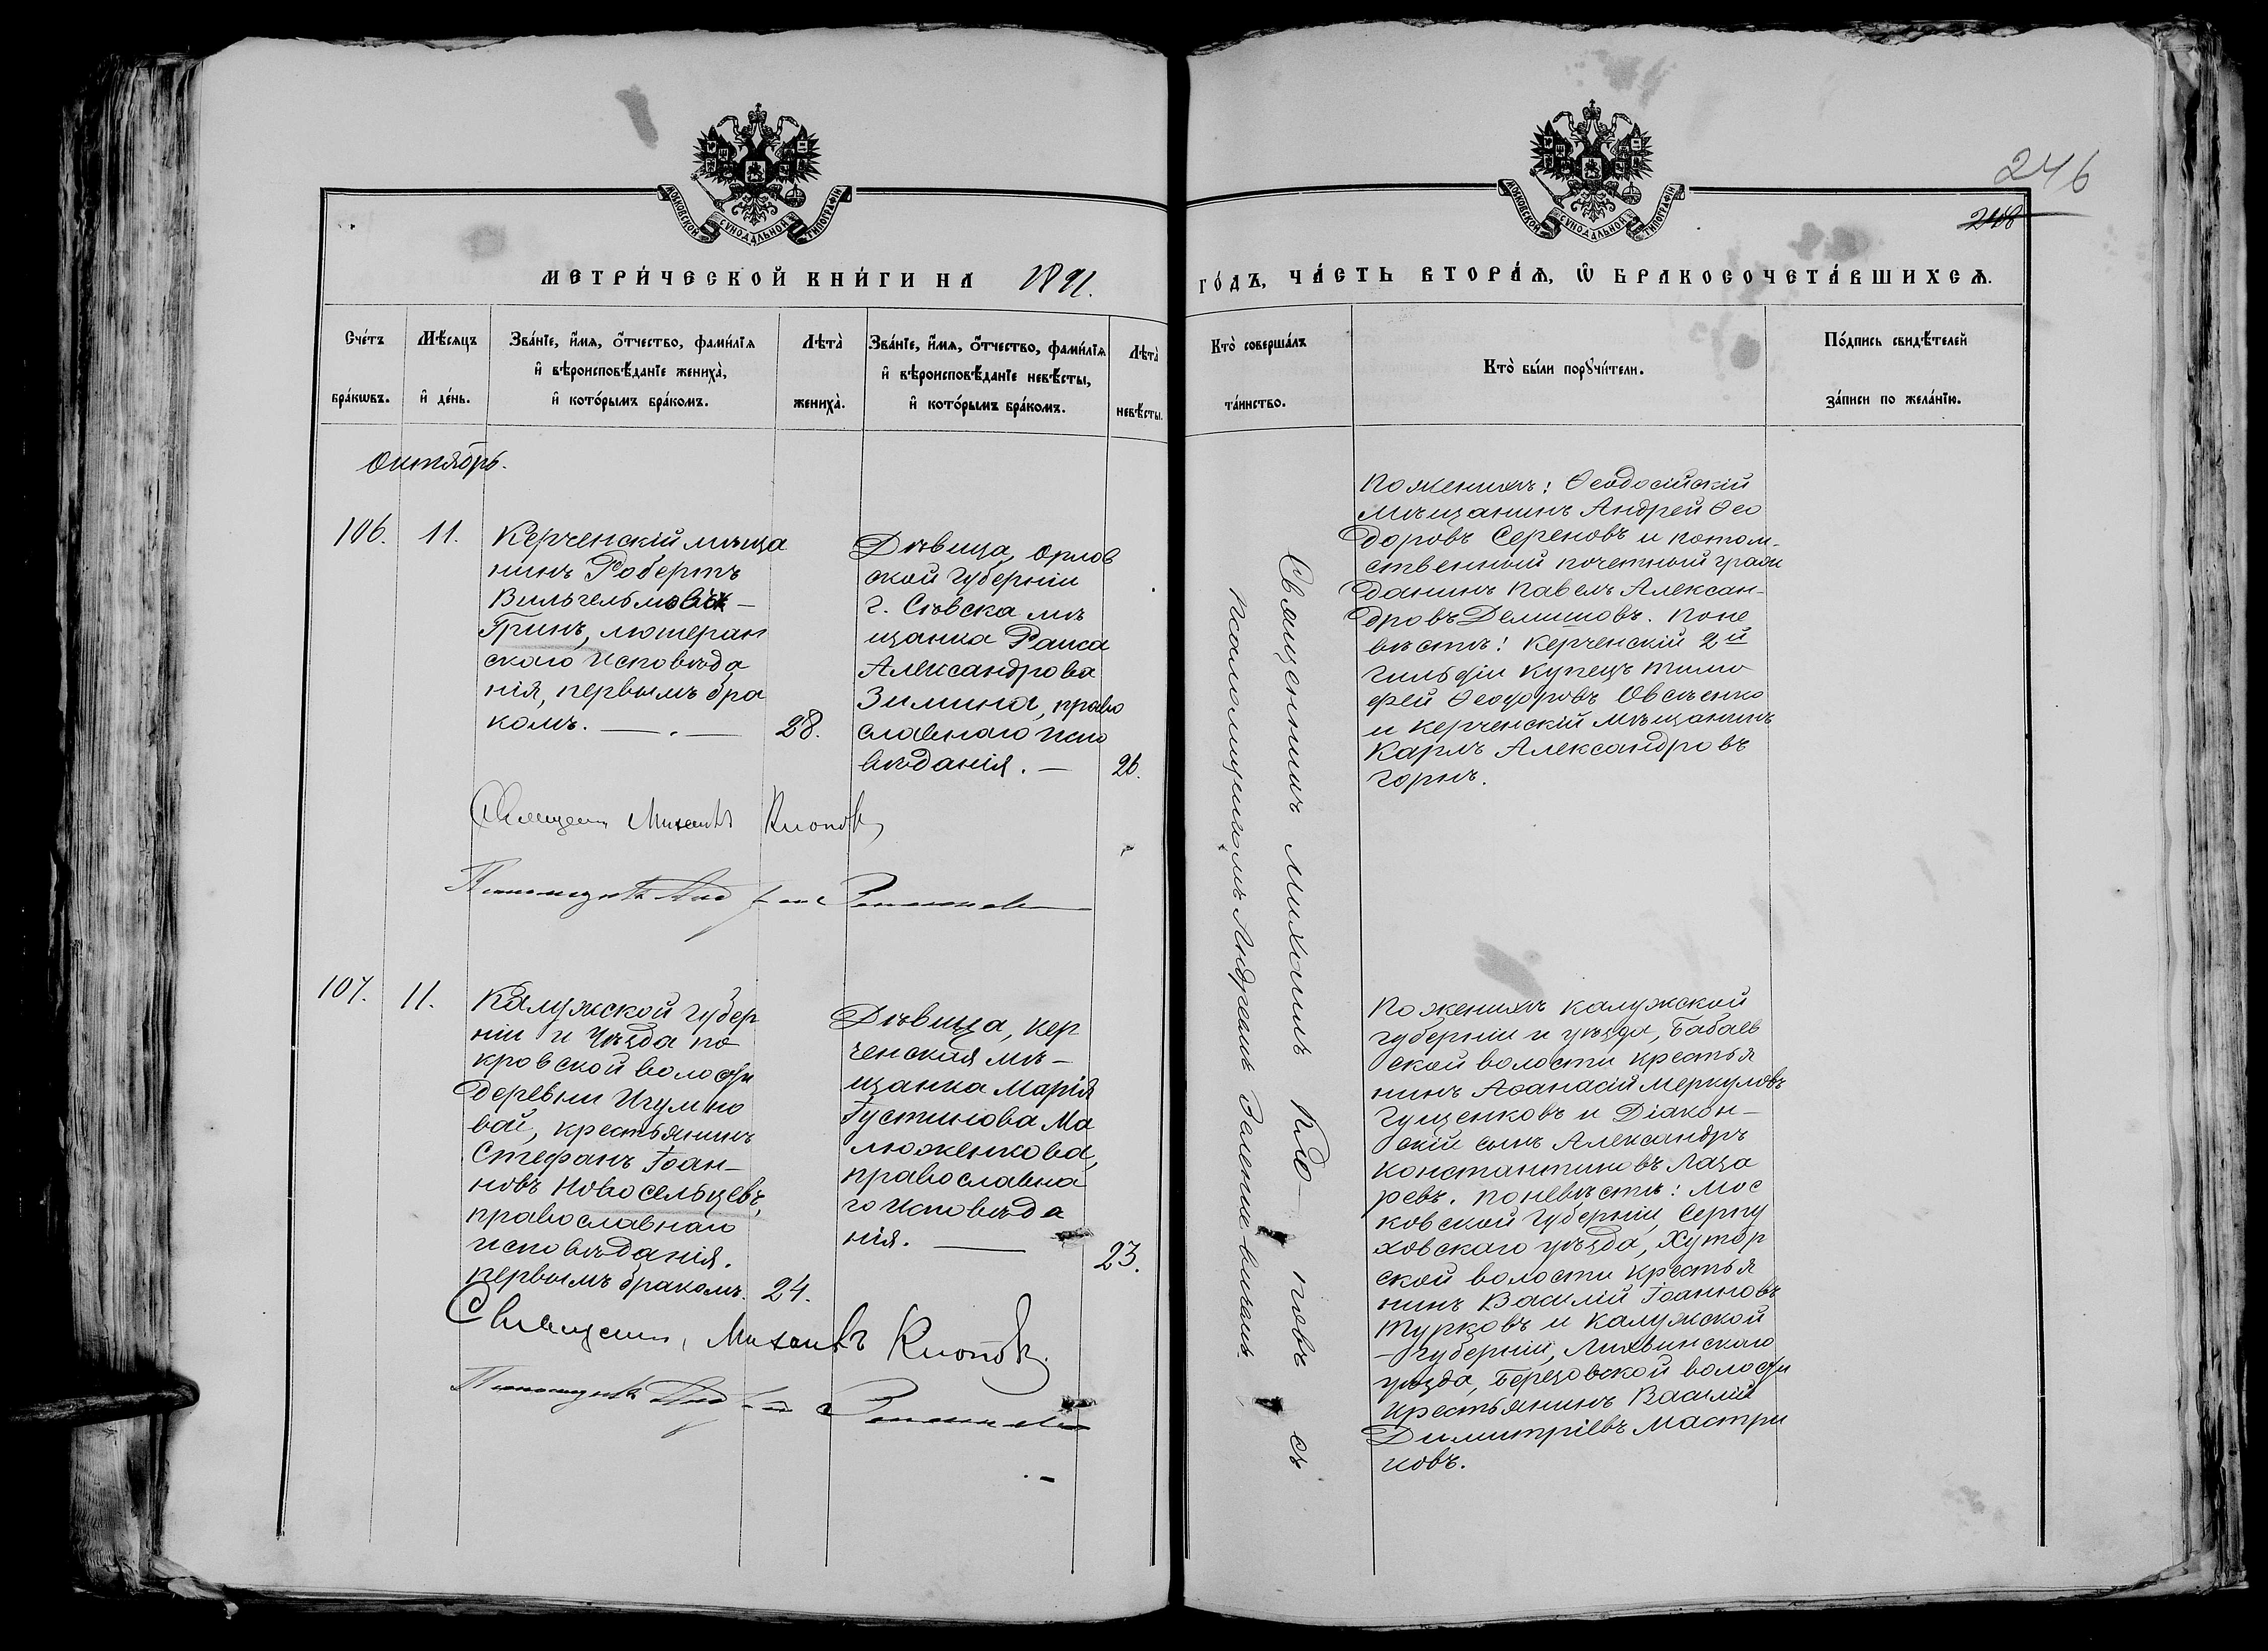 246
208
МОСКОВСКОЙ СѴНОДАЛЬНОЙ ТИПОГРАФІИ
МОСКОВСКОЙ СѴНОДАЛЬНОЙ ТИПОГРАФІИ
МЕТРИ́ЧЕСКОЙ КНИ́ГИ НА 1891.
ГО́ДЪ, ЧА́СТЬ ВТОРА́Ѧ, Ѡ҆ БРАКОСОЧЕТА́ВШИХСѦ.
Сче́тъ
бра́кѡвъ.
Мѣ́сѧцъ
и҆ де́нь.
Зва́нїе, и҆́мѧ, ѻ҆́тчество, фами́лїѧ
и҆ вѣроисповѣ́данїе жениха̀,
и҆ кото́рымъ бра́комъ.
Лѣта̀
жениха̀.
Зва́нїе, и҆́мѧ, ѻ҆́тчество, фами́лїѧ
и҆ вѣроисповѣ́данїе невѣ́сты,
и҆ кото́рымъ бра́комъ.
Лѣта̀
невѣ́сты.
Кто̀ соверша́лъ
та́инство.
Кто̀ бы́ли порꙋчи́тели.
По́дпись свидѣ́телей
за́писи по жела́нїю.
Октябрь.
106.
11.
Керченскій мѣща
нинъ Робертъ
Вильгельмовъ –
Гринъ, лютеран
скаго исповѣда
нія, первымъ бра
комъ. — . —
28.
Дѣвица, Орлов
ской губерніи
г. Сѣвска мѣ
щанка Раиса
Александрова
Зимина, право
славнаго испо
вѣданія. –
26.
Священникъ Михаилъ Кло– повъ съ
псаломщикомъ Андреемъ Зеленкевичемъ.
По женихѣ: Ѳеодосійскій
мѣщанинъ Андрей Ѳео
доровъ Сереновъ и потом-
ственный почетный граж
данинъ Павелъ Алексан-
дровъ Демишовъ. По не
вѣстѣ: Керченскій 2й
гильдіи купецъ Тимо
фей Ѳеодоровъ Овсѣенко
и керченскій мѣщанинъ
Карлъ Александровъ
Горнъ.
Священ. Михаилъ Клоповъ
Псаломщикъ Андрей
107.
11.
Калужской губер
ніи и уѣзда по
кровской волости
деревни Игумно
вой, крестьянинъ
Стефанъ Іоан–
новъ Новосельцевъ,
православнаго
исповѣданія.
первымъ бракомъ.
24.
Дѣвица, кер
ченская мѣ–
щанка Марія
Густинова Ма
люженкова,
православна
го исповѣда
нія. —
23.
По женихѣ Калужской
губерніи и уѣзда, Бабаев
ской волости крестья
нинъ Аѳанасій Меркуловъ
Гущенковъ и Діакон–
скій сынъ Александръ
Константиновъ Лаза
ревъ. По невѣстѣ: Мос
ковской губерніи, Серпу
ховскаго уѣзда, Хутор
ской волости крестья
нинъ Василій Іоанновъ
Турковъ и Калужской
– губерніи, Лихвинскаго
уѣзда, Березовской волости
крестьянинъ Василій
Димитріевъ Мастри
ковъ.
Священ. Михаилъ Клоповъ.
Псаломщикъ Андрей